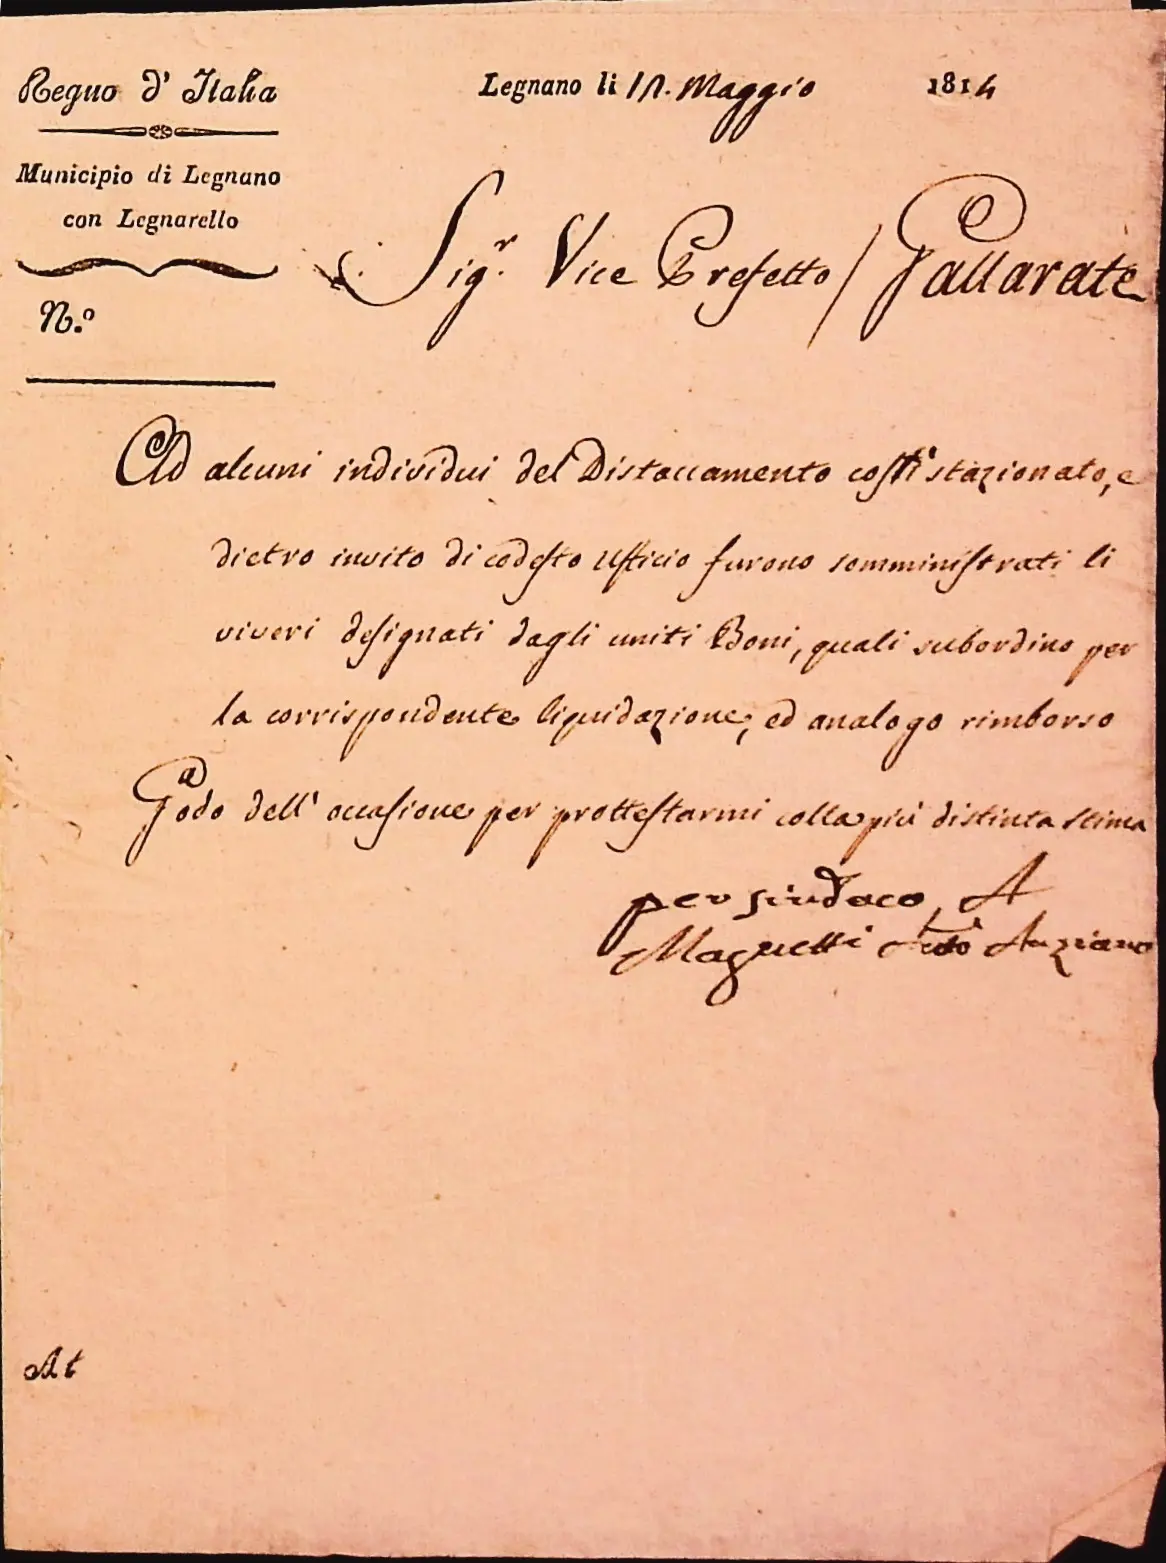 Regno d' Italia
Municipio di Legnano
con Legnarello
N.º
Legnano li Maggio 1814
Sig.r Vice Prefetto / Gallarate
Ad alcuni individui del Distaccamento costì stazionato, e
dietro invito di codesto Ufficio furono somministrati li
viveri designati dagli uniti Boni, quali subordino per
la corrispondente liquidazione, ed analogo rimborso
Godo dell' occasione per prottestarmi colla più distinta stima
per sindaco A
Magnetti Anziano
At